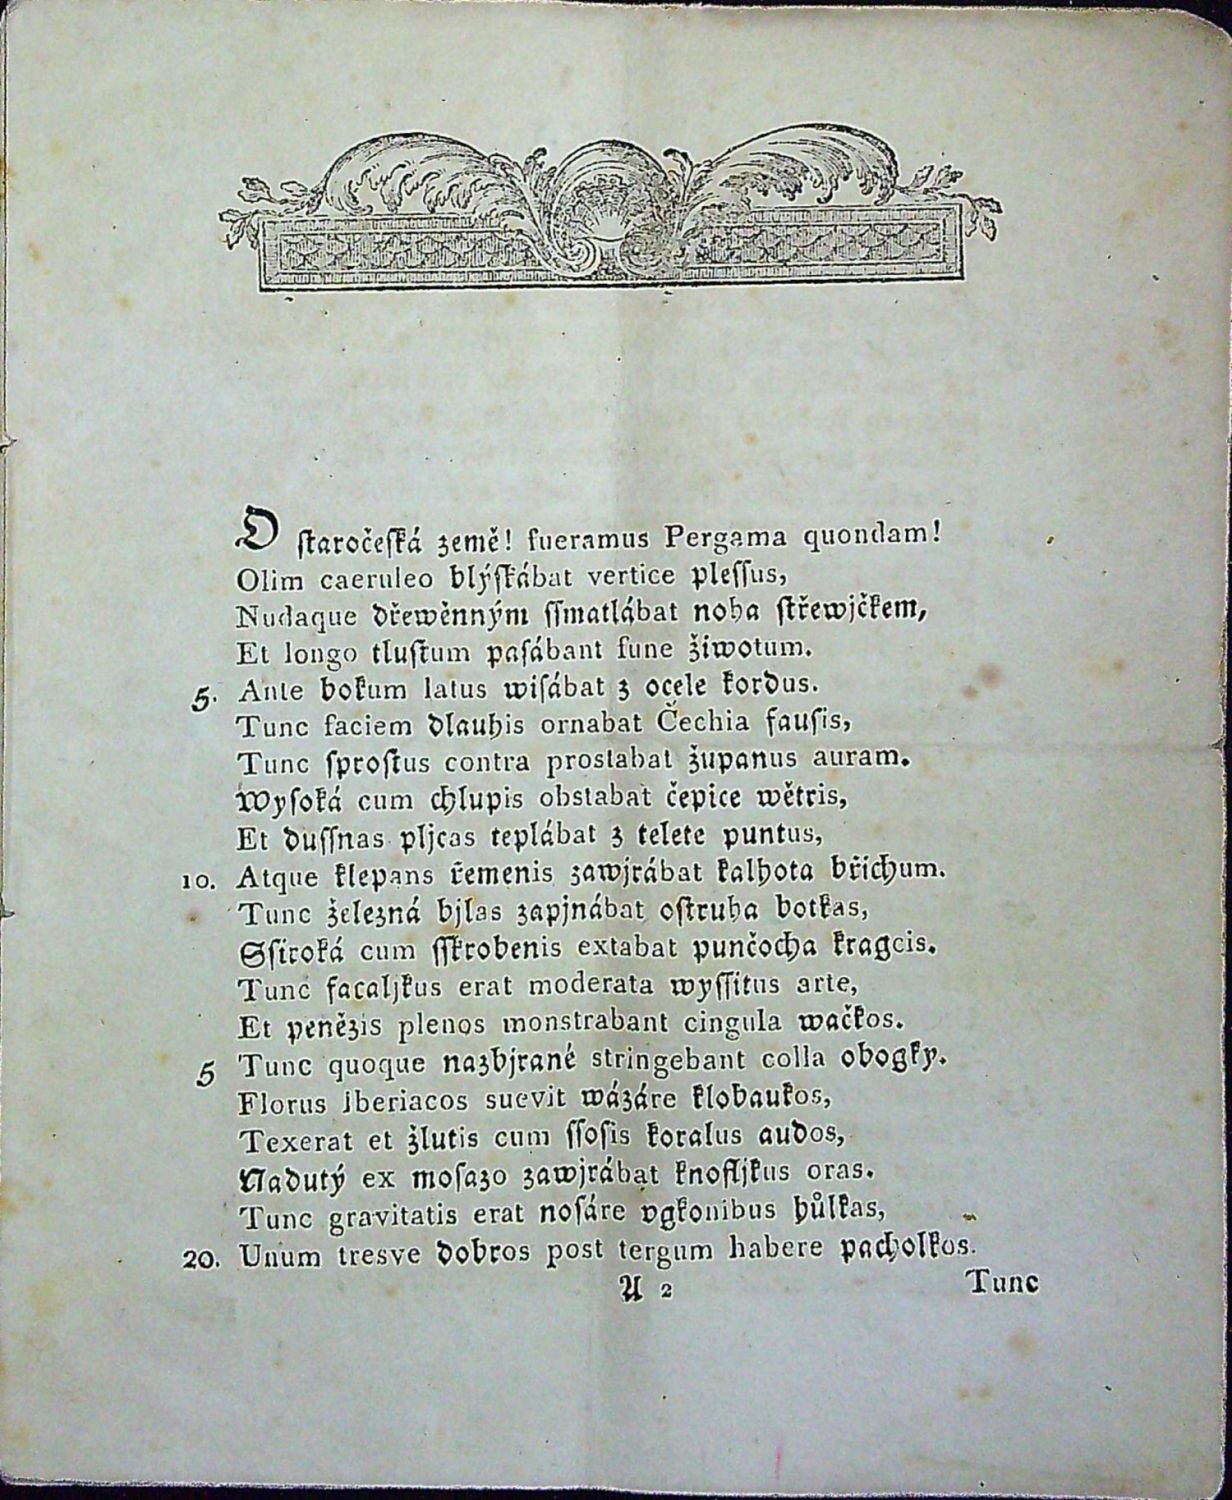 O staročeſká země! fueramus Pergama quondam!
Olim caeruleo blýſkábat vertice pleſſus,
Nudaque dřewěnným ſſmatlábat noha ſtřewjčkem,
Et longo tluſtum paſábant fune žiwotum.
5. Ante bokum latus wiſábat z ocele kordus.
Tunc faciem dlauhis ornabat Čechia fauſis,
Tunc ſproſtus contra prostabat županus auram.
Wyſoká cum chlupis obstabat čepice wětris,
Et duſſnas pljcas teplábat z telete puntus,
10. Atque klepans řemenis zawjrábat kalhota břichum.
Tunc železná bjlas zapjnábat oſtruha botkas,
Sſiroká cum ſſkrobenis extabat punčocha kragcis.
Tunc facaljkus erat moderata wyſſitus arte,
Et penězis plenos monstrabant cingula wačkos.
5 Tunc quoque nazbjrané stringebant colla obogky.
Florus iberiacos suevit wázáre klobaukos,
Texerat et žlutis cum ſſoſis koralus audos,
Nadutý ex moſazo zawjrábat knofljkus oras.
Tunc gravitatis erat noſáre vgkonibus hůlkas,
20. Unum tresve dobros post tergum habere pacholkos.
A 2 Tunc